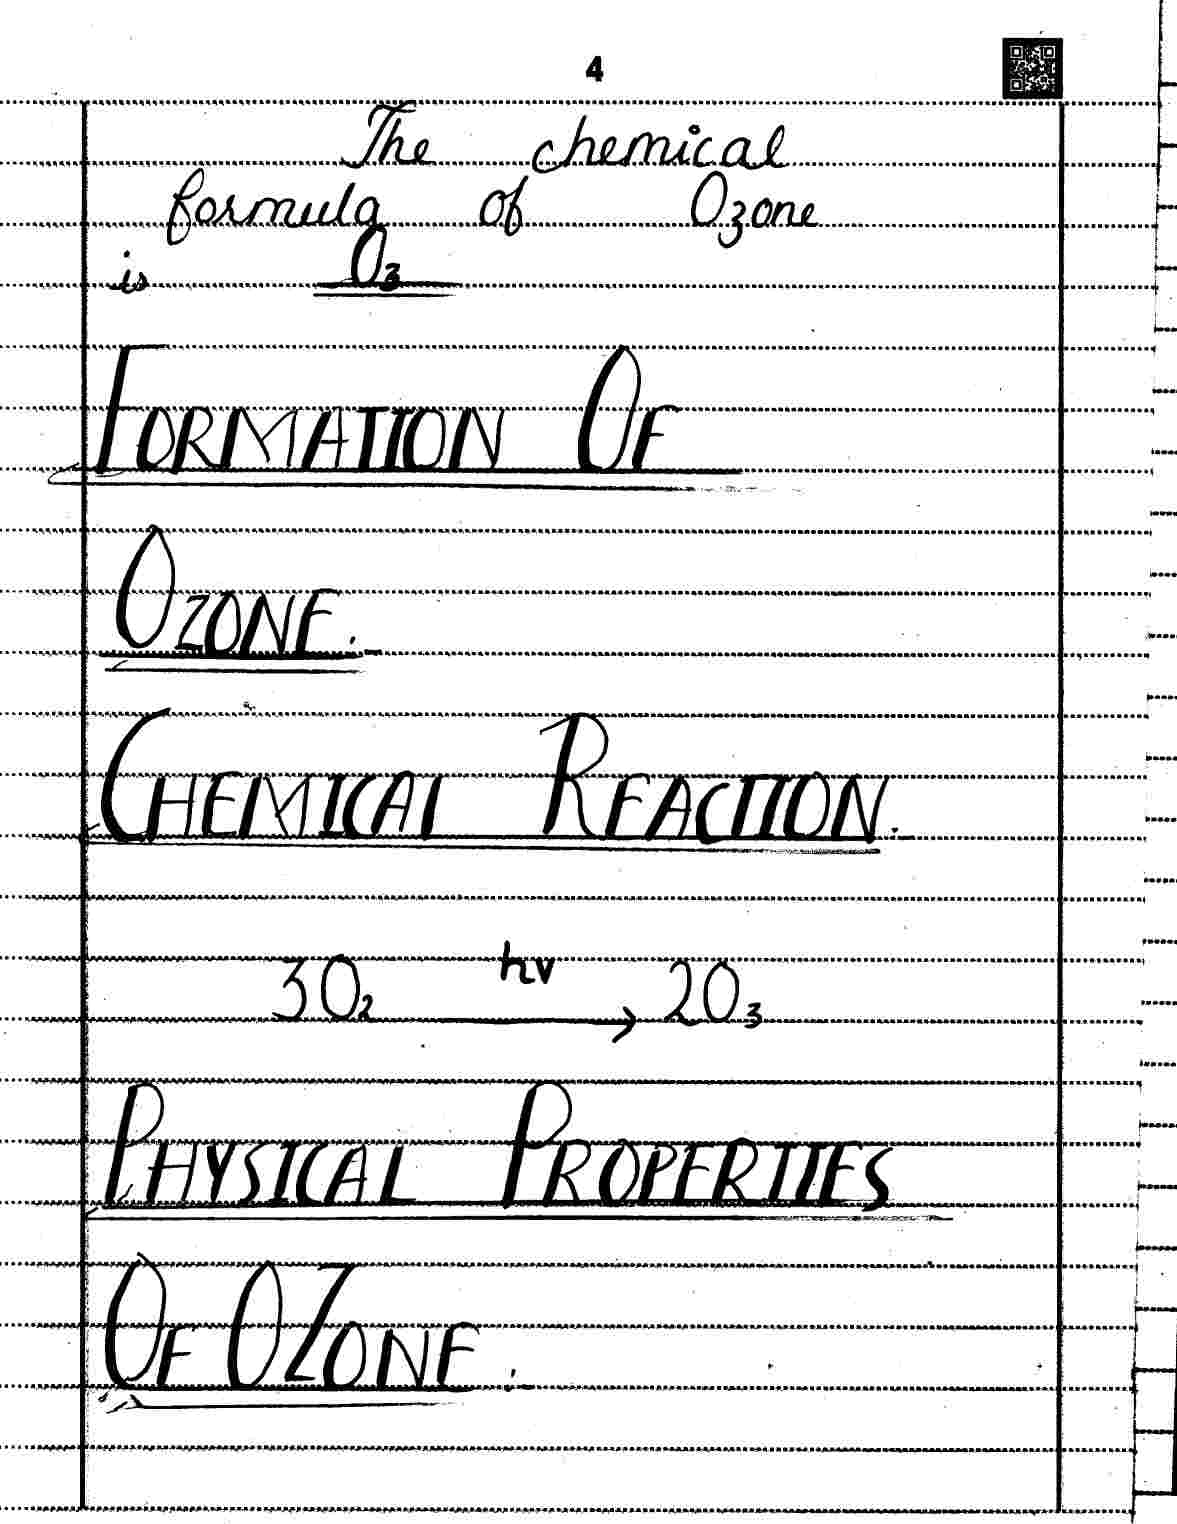 4
The chemical
formula of Ozone
is O₃
FORMATION OF
OZONE.
CHEMICAL REACTION.
hv
3O₂ → 2O₃
PHYSICAL PROPERTIES
OF OZONE :